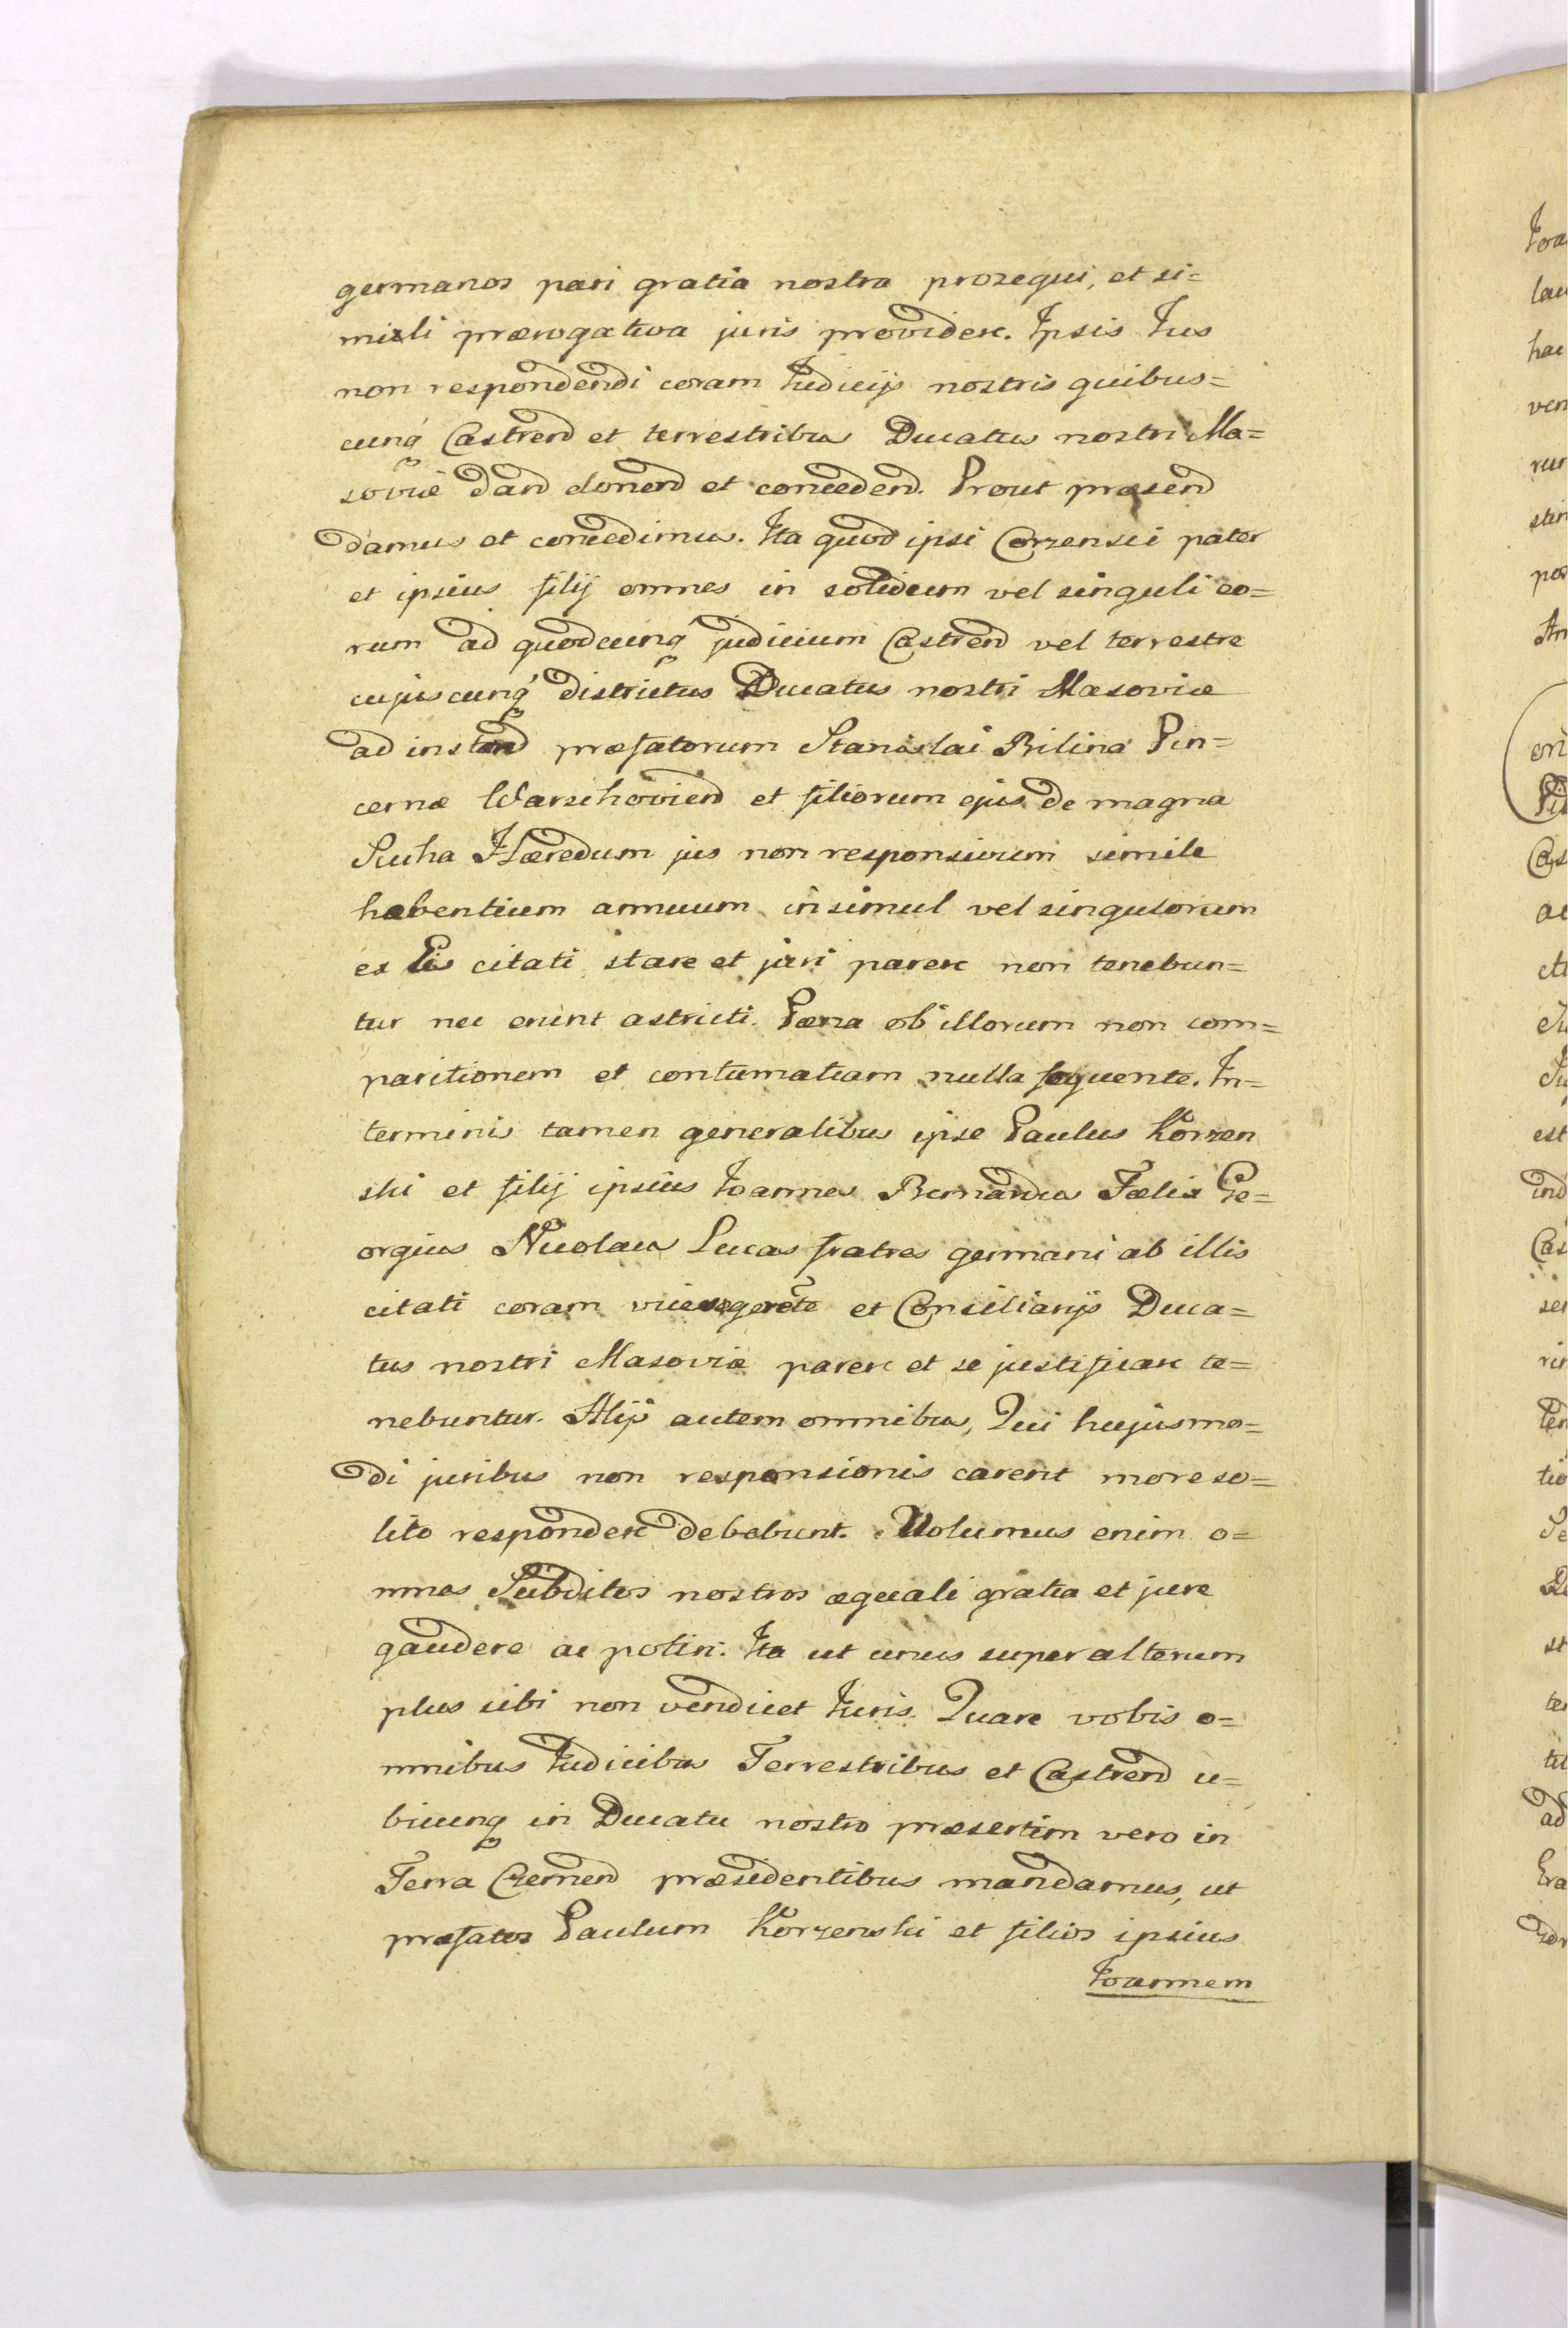 germanos pari gratia nostra prozequi, et si=
mili prærogativa juris providere. Ipsis Jus
non respondendi coram Judicijs nostris quibus=
cunq Castren et terrestribus Ducatus nostri Ma=
soviæ dand donend et concedend. Prout præsen
damus et concedimus. Ita quod ipsi Corzensci pater
et ipsius filij omnes in solidum vel singuli eo=
rum ad quodcunq judicium Castren vel terrestre
cujuscunq districtus Ducatus nostri Masoviæ
ad instan præfatorum Stanislai Bilina Pin=
cernæ Warschovien et filiorum ejus de magna
Sucha Hæredum jus non responsivum simile
habentium annuum insimul vel singulorum
ex Eis citati stare et juri parere non tenebun=
tur nec erunt astricti. Pæna ob illorum non com=
paritionem et contumatiam nulla sequente. In=
terminis tamen generalibus ipse Paulus Korzen
ski et filij ipsius Joannes Bernardus Fælix Ge=
orgius Nicolaus Lucas fratres germani ab illis
citati coram vicesgerēte et Consiliarijs Duca=
tus nostri Masoviæ parere et se justificare te=
nebuntur. Alijs autem omnibus, Qui hujusmo=
di juribus non responsionis carent more so=
lito respondere debebunt. Volumus enim o=
mnes Subditos nostros æquali gratia et jure
gaudere ac potiri. Ita ut unus super alterum
plus sibi non vendicet Juris. Quare vobis o=
mnibus Judicibus Terrestribus et Castren u=
bicunq in Ducatu nostro præsertim vero in
Terra Czernen præsidentibus mandamus, ut
præfatos Paulum Korzenski et filios ipsius
Joannem